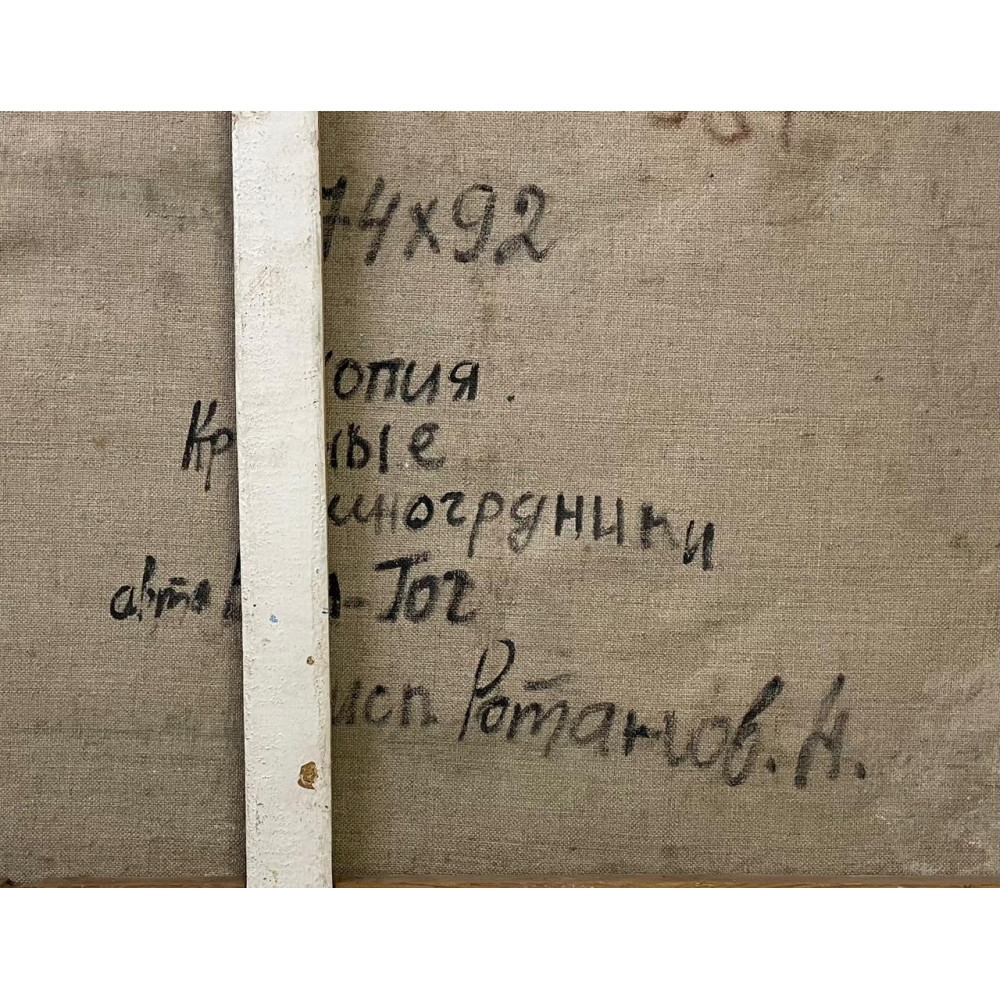 74х92
опия.
Кр ные
иногрдники
авто В н-Гог
исп Ротанов.А.